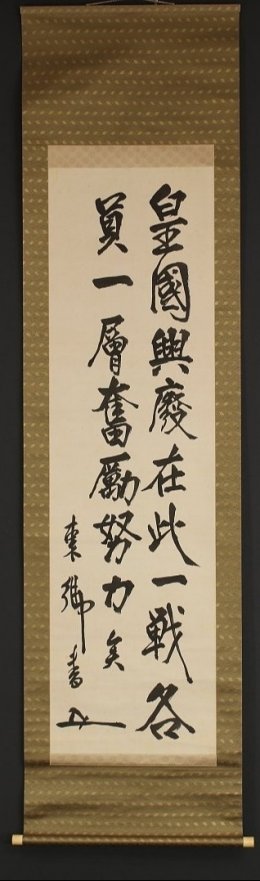 皇國興廢在此一戦各
員一層奮勵努力矣
東郷書